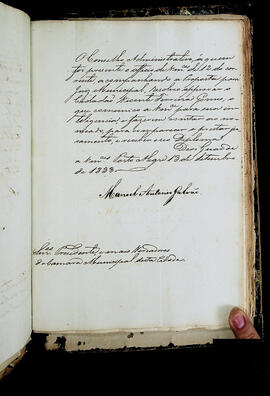 O Conselho Administractivo, á quem
foi presente o officio de Vm.ces de 12 do cor
rente, acompanhando a Proposta para
Juiz Municipal, resolveo approvar o
Cidadão Vicente Ferreira Gomes, o
que communica a Vm.ces para sua in
telligencia, e fazerem constar ao no
meado, para comparecer a prestar ju
ramento, e receber o seo Diploma.
Deos Guarde a
a Vm.ces Porto Alegre 13 de
de 1833
Manoel Antonio Galvão
Snrs. Presidente e mais Vereadores
da Camara Municipal desta Cidade.